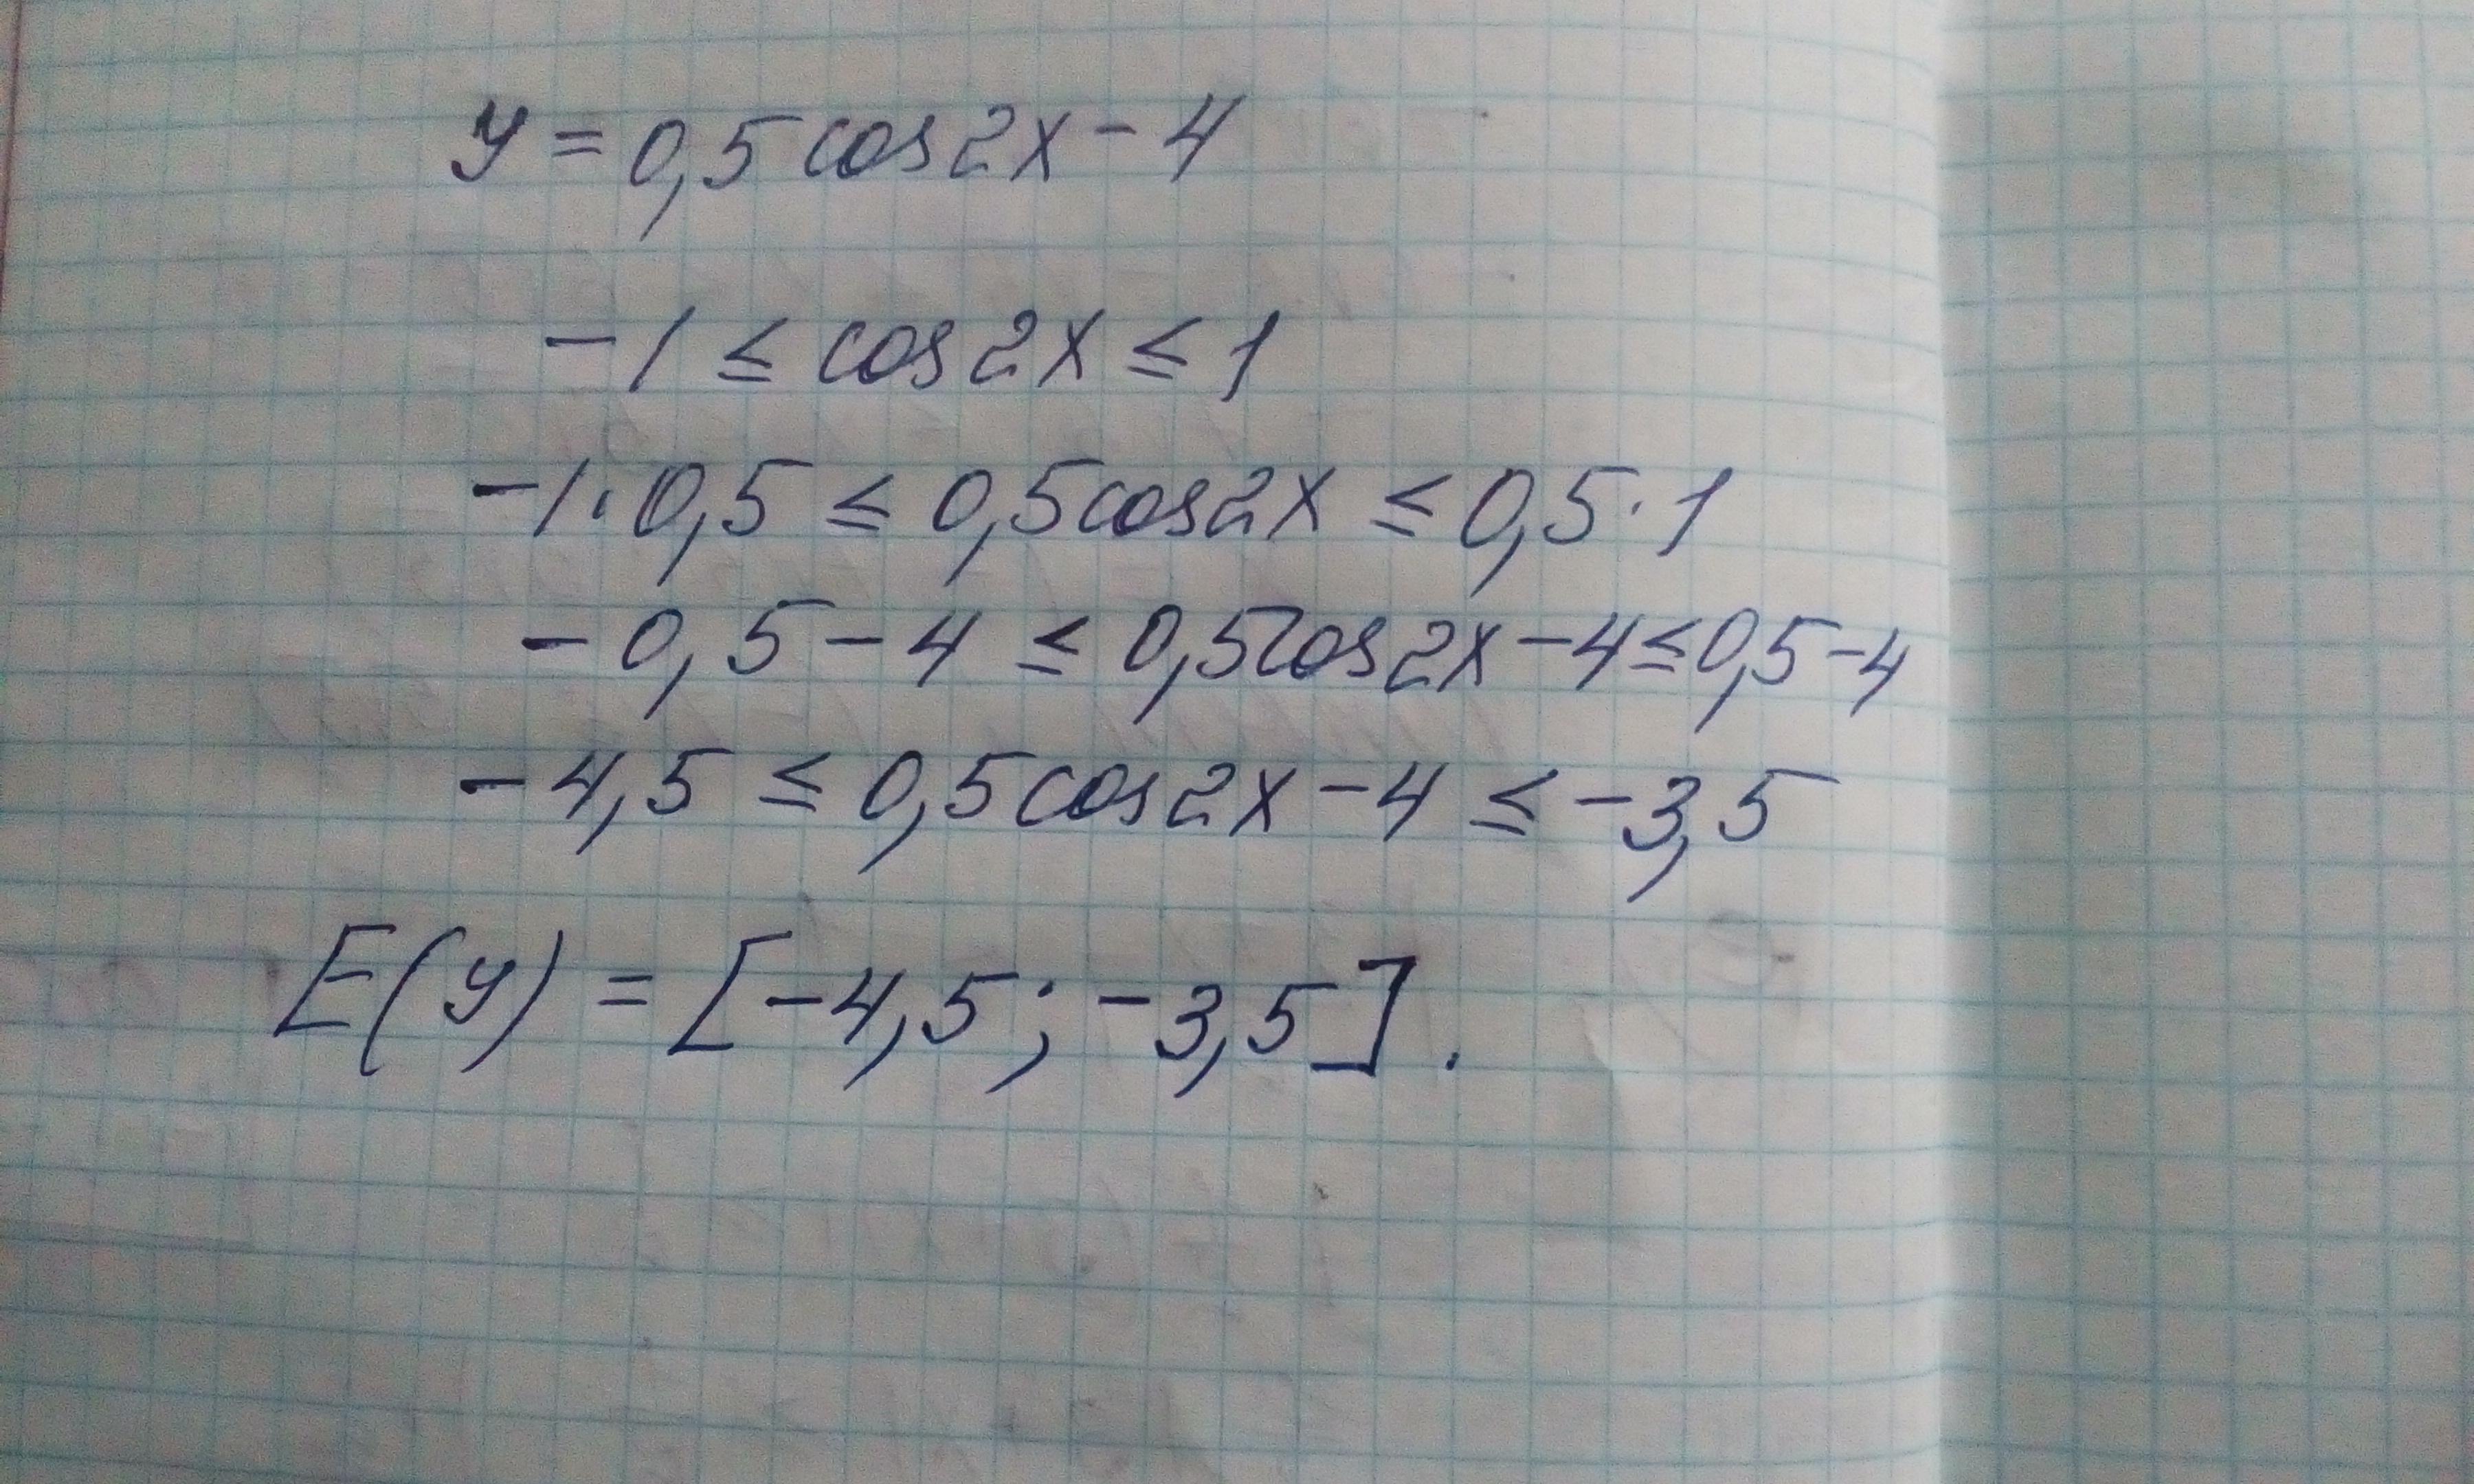 y = 0,5 cos2x - 4
-1 ≤ cos2x ≤ 1
-1·0,5 ≤ 0,5cos2x ≤ 0,5·1
-0,5-4 ≤ 0,5cos2x-4≤0,5-4
-4,5 ≤ 0,5cos2x-4 ≤ -3,5
E(y) = [-4,5; -3,5].